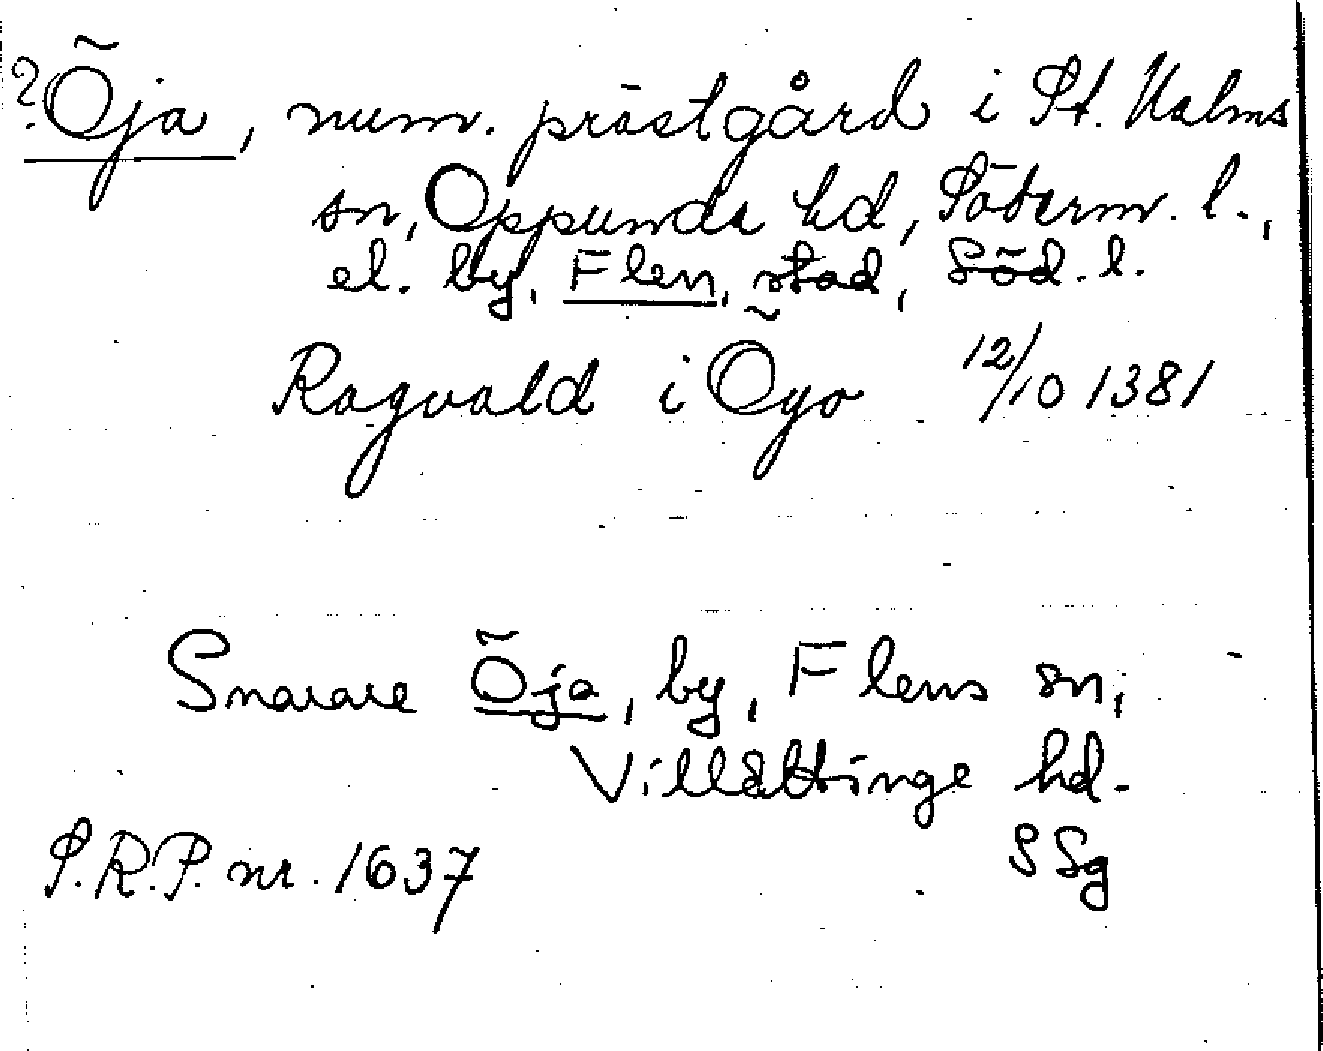 ? Öja, num. prästgård i St. Malms
sn, Oppunda hd, Söderm. l.,
el. by, Flen, stad, Söd. l.
Ragvald i Öyo 12/10 1381
Snarare Öja, by, Flens sn,
Villåttinge hd.
SSg
S.R.P. nr. 1637